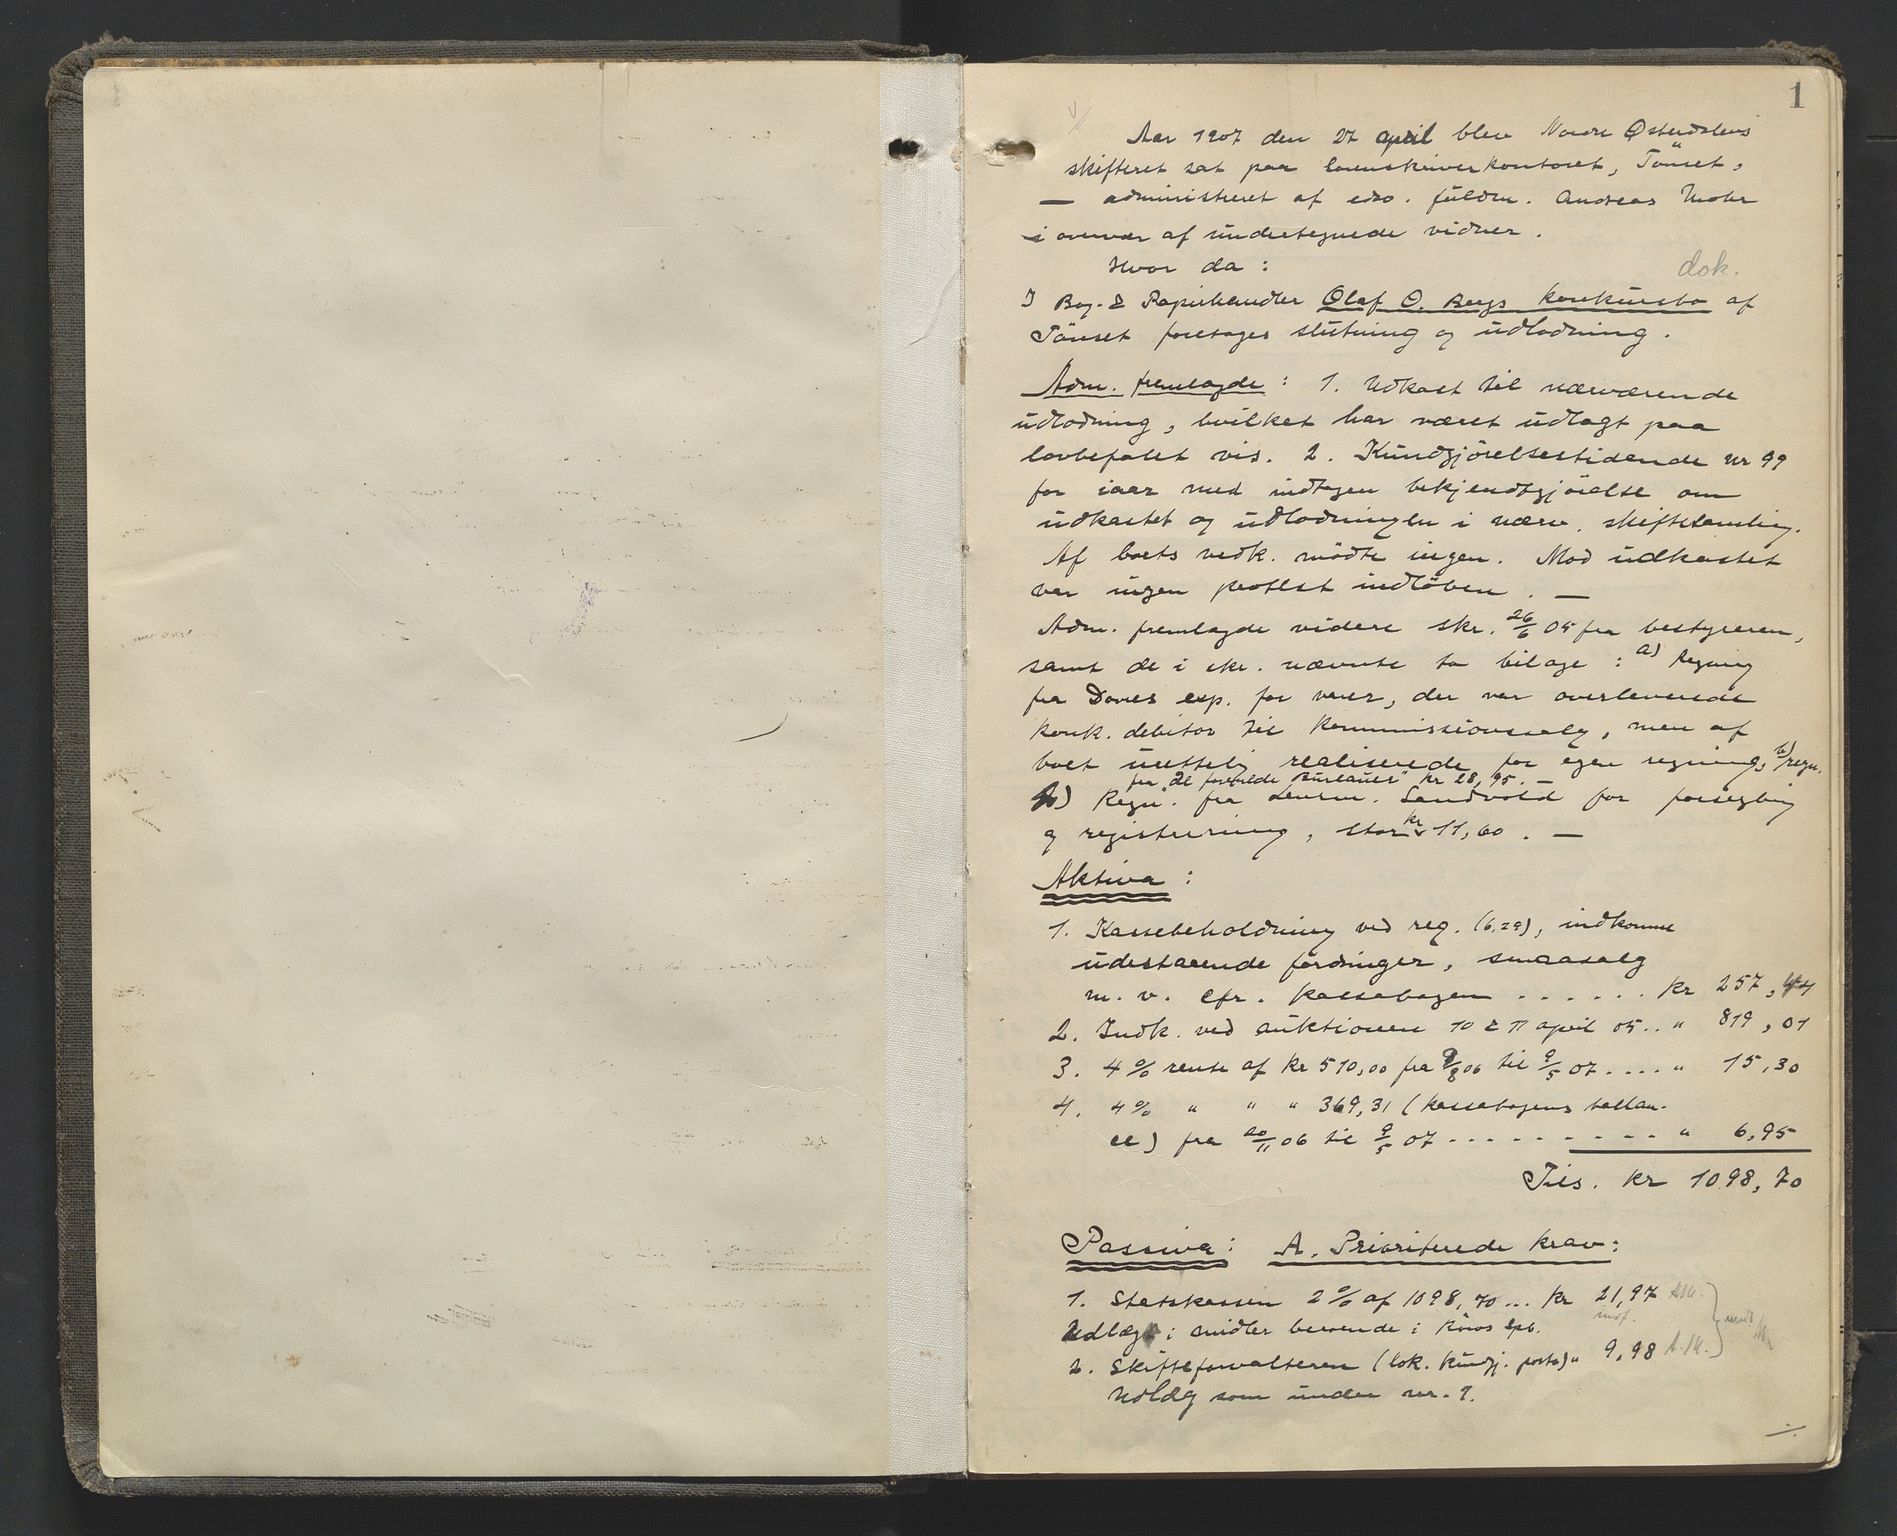 1
Aar 1907 den 27 april blev Nordre Østerdalens
skifteret sat paa sorenskriverkontoret, Tönset,
— administreret af edsv. fuldm. Andreas Mohr
i overvær af undertegnede vidner.
Hvor da:
dok.
I Bog- & Papirhandler Olaf O. Bergs konkursbo af
Tönset foretages slutning og udlodning.
Adm. fremlagde: 1. Udkast til nærværende
udlodning, hvilket har været udlagt paa
lovbefalet vis. 2. Kundgjörelsestidende nr 99
for iaar med indtagen bekjendtgjörelse om
udkastet og udlodningen i nærv. skiftesamling.
Af boets vedk. mödte ingen. Mod udkastet
var ingen protest indlöben. —
Adm. fremlagde videre skr. 26/6 05 fra bestyreren,
samt de i skr. nævnte to bilage: a) Regning
fra Doves exp. for varer, der var overleverede
konk. debitor til kommissionssalg, men af
boet urettelig realiserede for egen regning, b) regn.
fra "de forenede Bureauer" kr 28,95. —
Regn. fra Lensm. Sandvold for forsegling
og registrering, stor kr 11,60. —
Aktiva:
1. Kassebeholdning ved reg. (6,29), indkomne
udestaaende fordringer, smaasalg
m. v. cfr. kassabogen . . . . . . kr 257,44
2. Indk. ved auktionen 10 & 11 april 05.. " 819,01
3. 4 % rente af kr 510,00 fra 9/8 06 til 9/5 07 .... " 15,30
4. 4 % " " " 369,31 (kassabogens ballan-
ce) fra 20/11 06 til 9/5 07 - - - - - - - - - - " 6,95
Tils. kr 1098,70
Passiva: A. Prioriterede krav:
1. Statskassen 2 % af 1098,70 ... kr 21,97 AM.
Udlægt i midler beroende i Röros Spb.
2. Skifteforvalteren (lok. kundgj. porto) " 9,98 A.M.
Udlæg som under nr. 1.